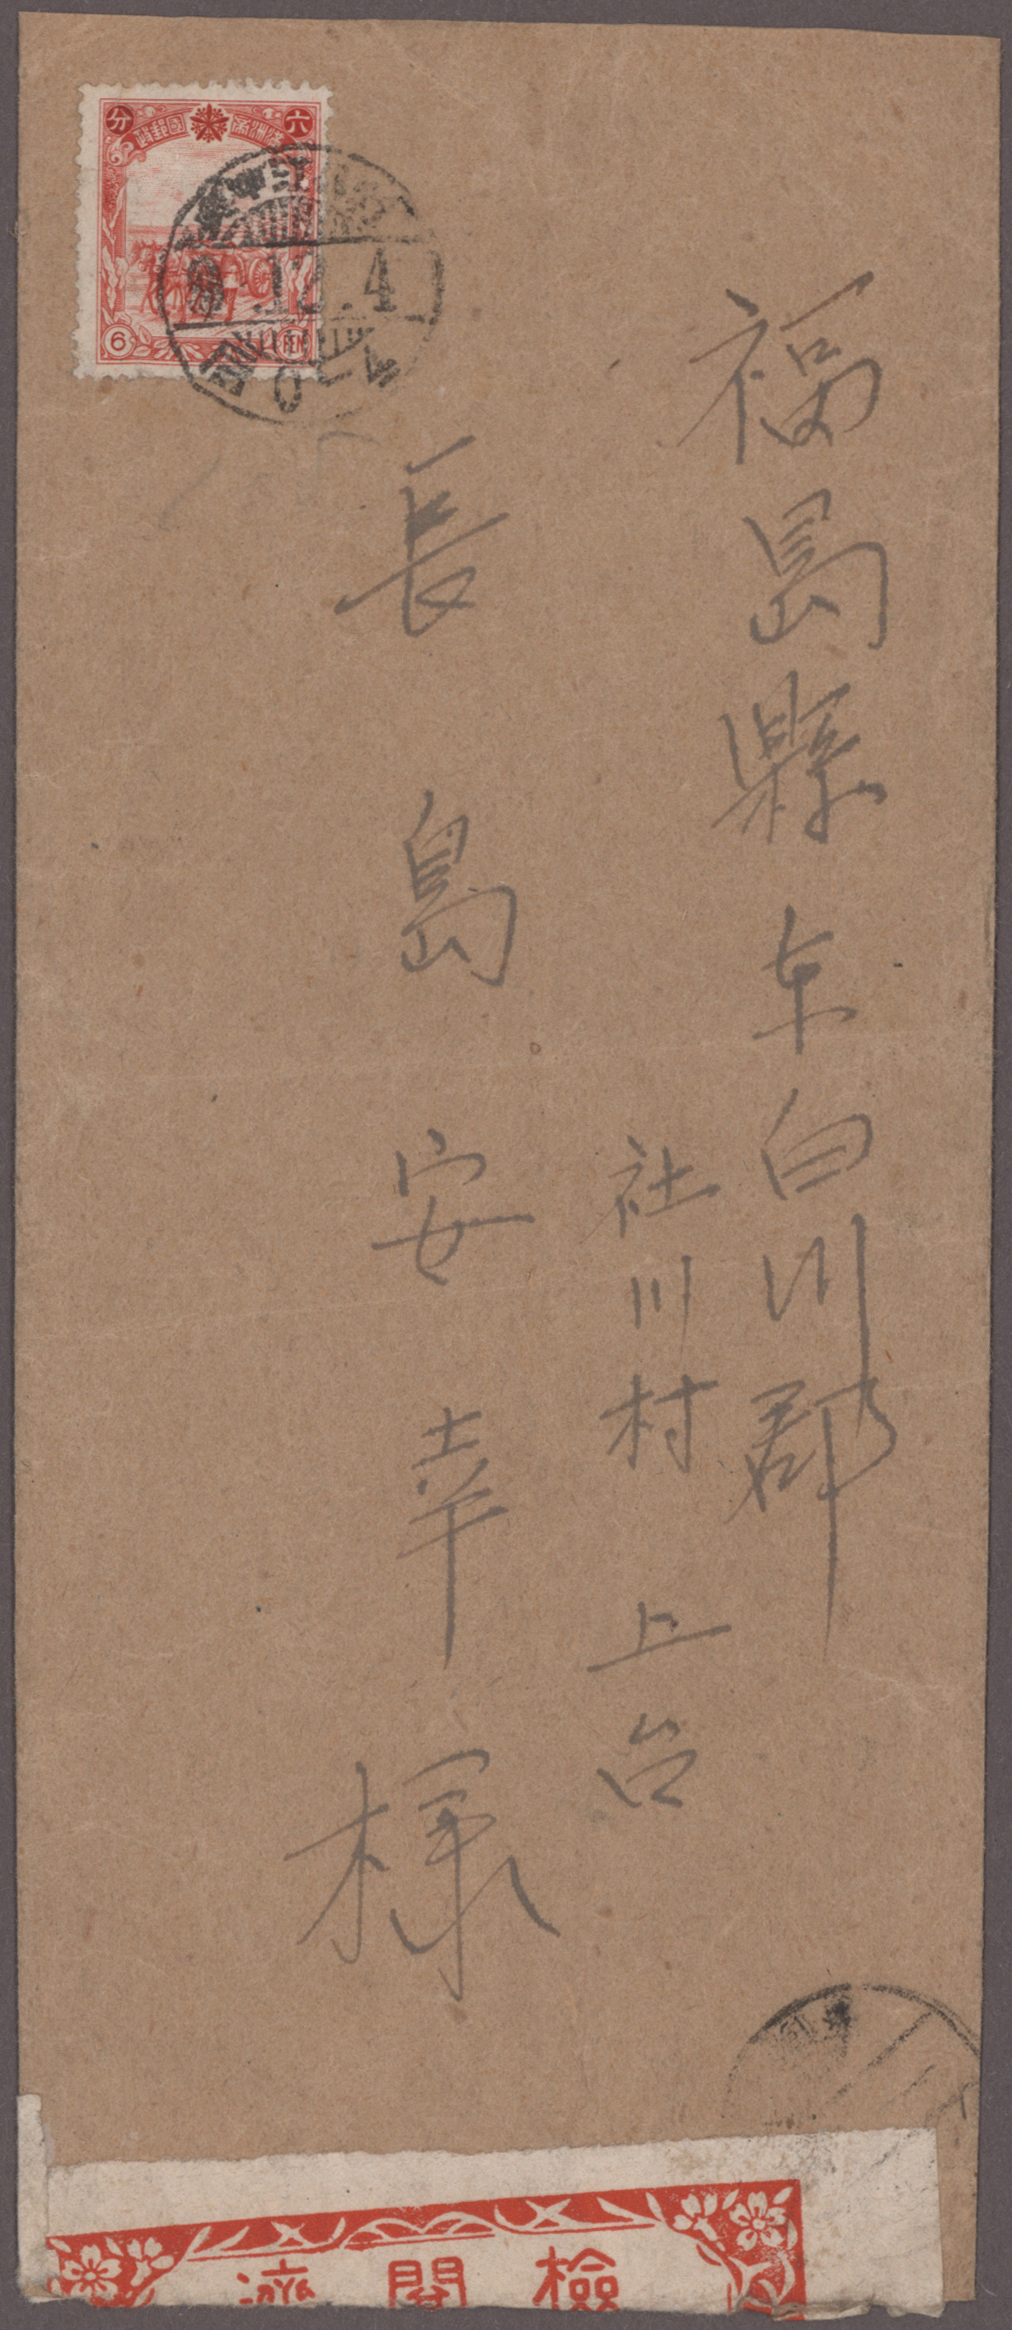 福島縣東白川郡
社川村 上台
長島安幸様
六 滿洲帝國郵政 分
6 FEN
9.12.4
檢閱濟